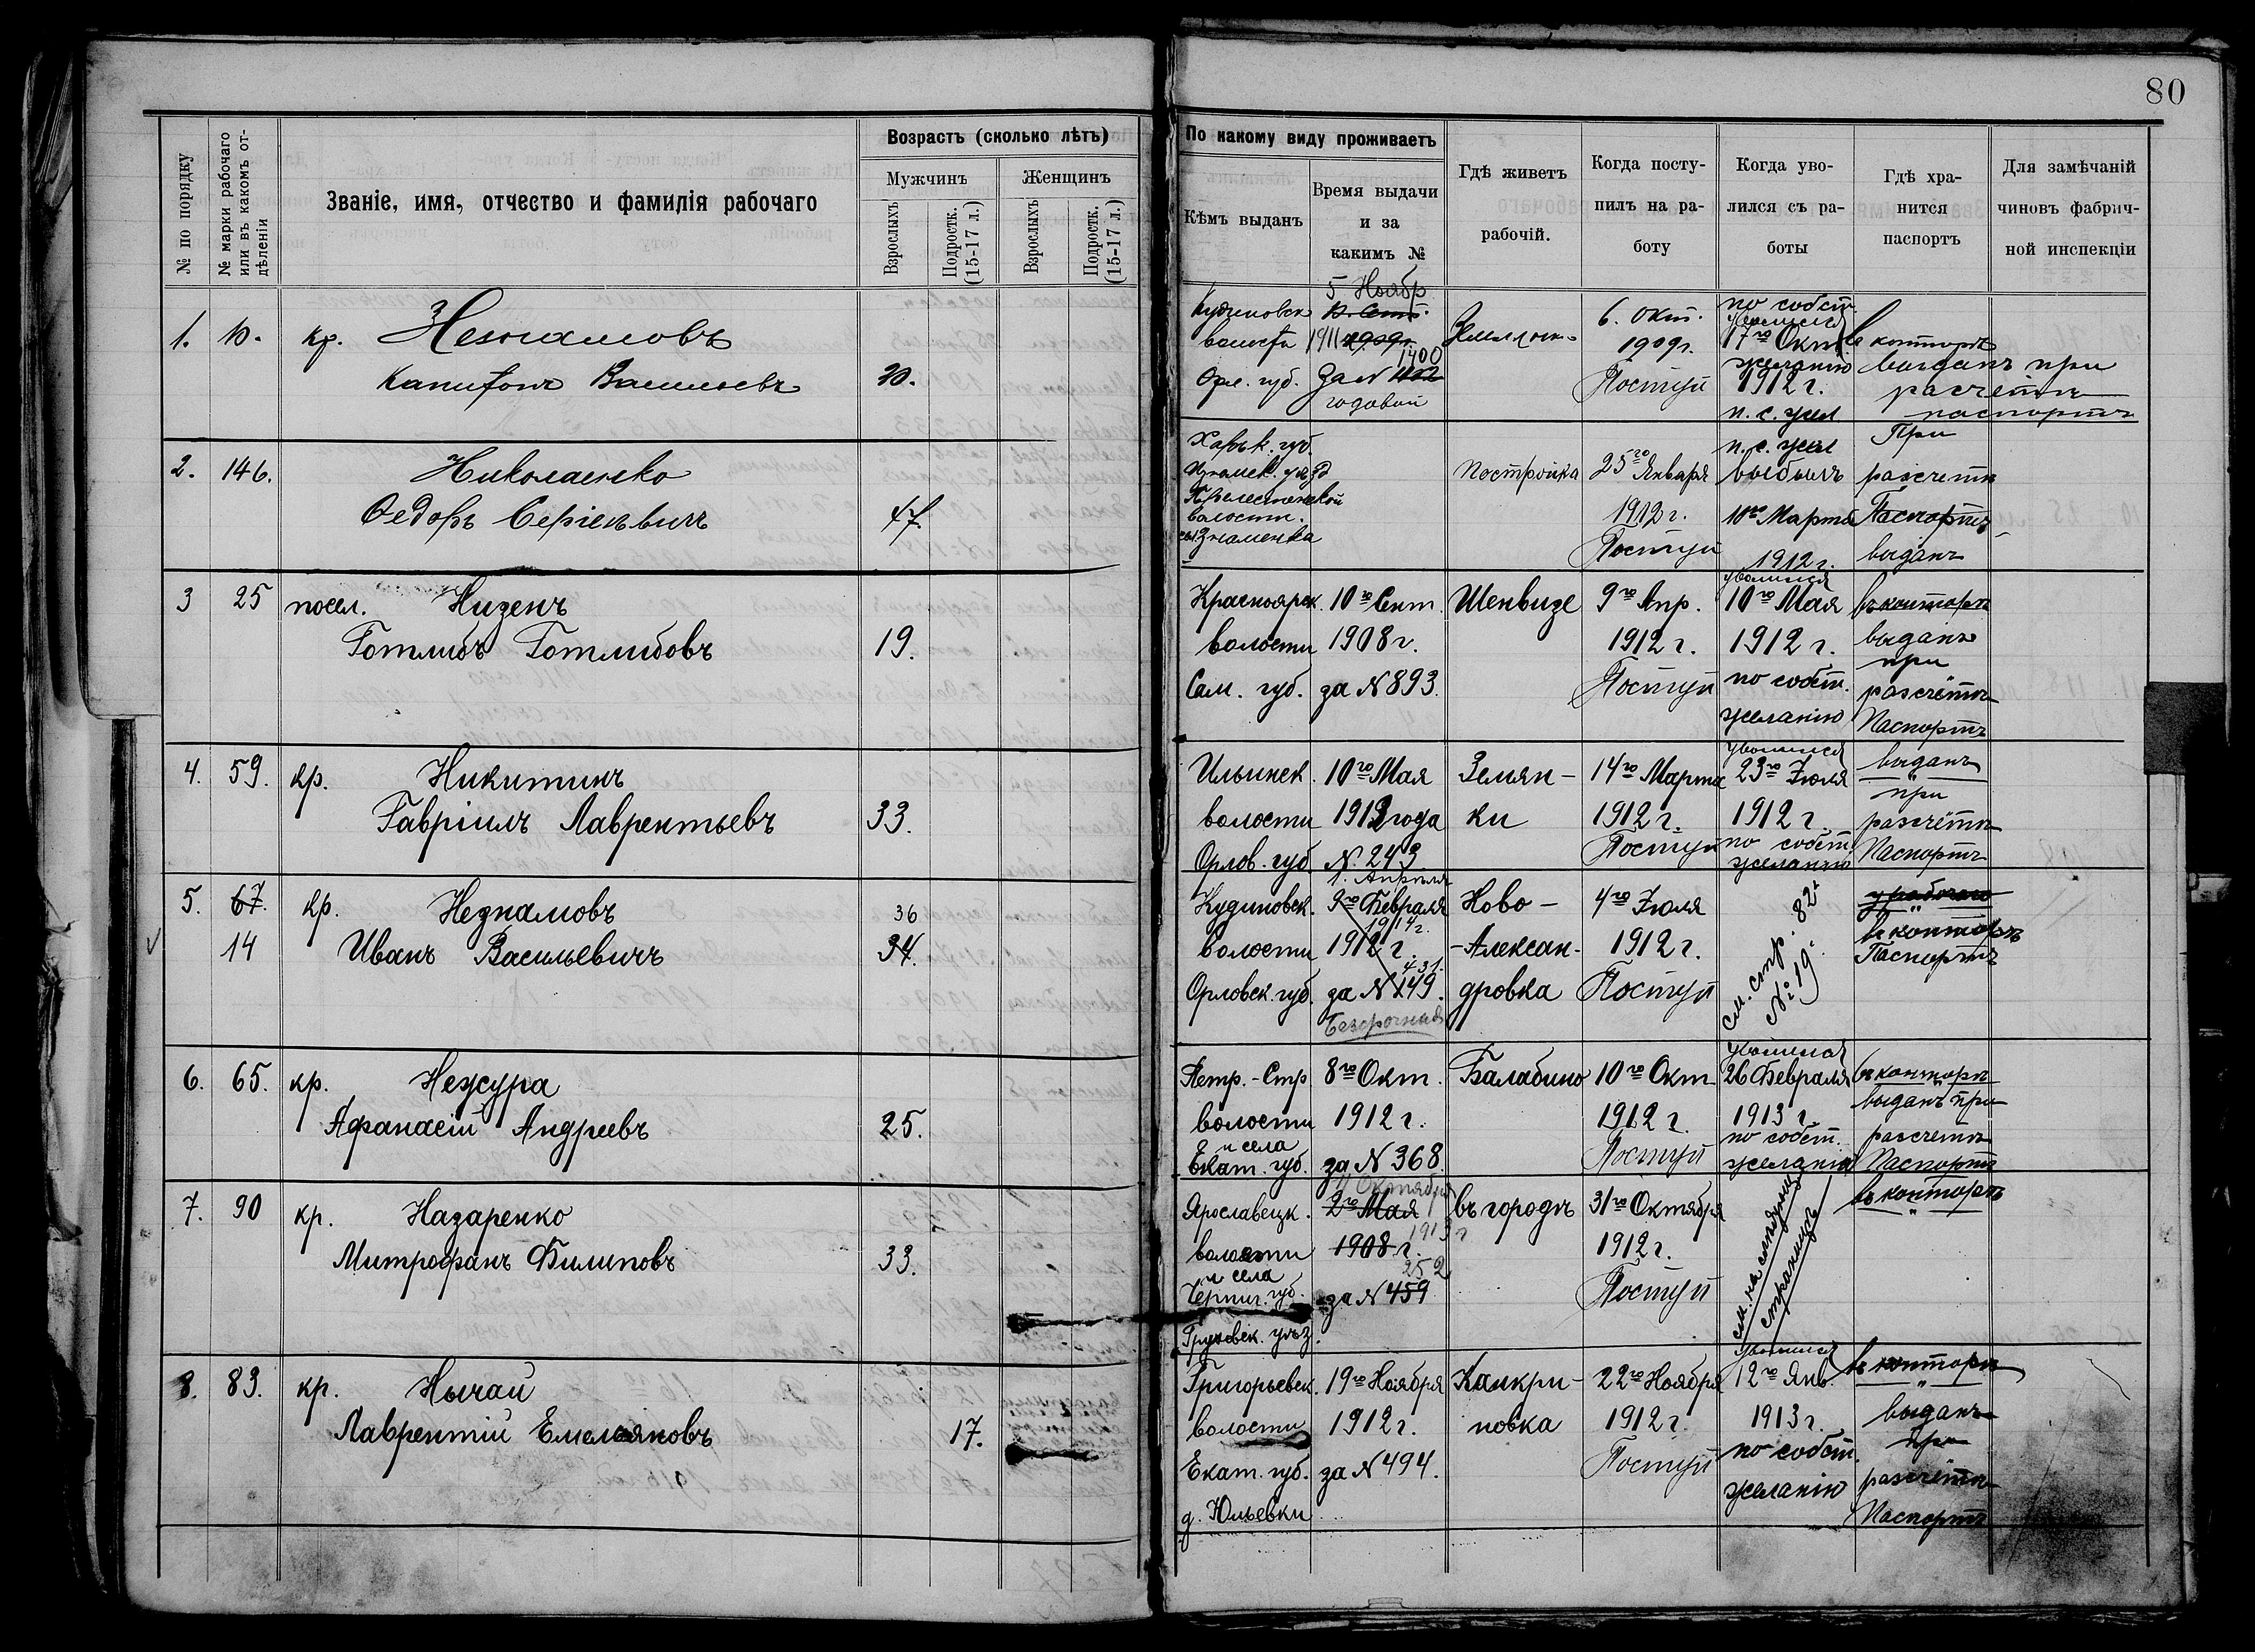 80
№ по порядку
№ марки рабочаго или въ какомъ отдѣленіи
Званіе, имя, отчество и фамилія рабочаго
Возрастъ (сколько лѣтъ)
Мужчинъ
Женщинъ
Взрослыхъ
Подростк. (15-17 л.)
Взрослыхъ
Подростк. (15-17 л.)
По какому виду проживаетъ
Кѣмъ выданъ
Время выдачи
и за
какимъ №
Гдѣ живетъ
рабочій.
Когда посту-
пилъ на ра-
боту
Когда уво-
лился съ ра-
боты
Гдѣ хра-
нится
паспортъ
Для замѣчаній
чиновъ фабрич-
ной инспекціи
1.
кр.
Незнамовъ
Капитонъ Васильевъ
волости
Орл. губ.
5 Ноябр
1911
1400
за №
годовой
6. Окт.
1909г.
Поступ
по собст.
уволился
17го Окт.
желанію
1912 г.
п. с. жел
въ конторѣ
выданъ при
расчетѣ
паспортъ
2. 146.
Николаенко
Федоръ Сергіевичъ
47.
Харьк. губ.
волости.
Знаменка
постройка
25го Января
1912 г.
Поступ
п. с. жел
выбылъ
10го Марта
1912 г.
При
расчетѣ
Паспортъ
выданъ
3 25
посел. Низенъ
Готлибъ Готлибовъ
19.
Красноярск.
волости
Сам. губ.
10го Сент.
1908 г.
за № 893.
Шенвизе
9го Апр.
1912 г.
Поступ
уволился
10го Мая
1912 г.
по собст.
желанію
въ конторѣ
выданъ
при
расчётѣ
Паспортъ
4. 59.
кр. Никитинъ
Гавріилъ Лаврентьевъ
33.
Ильинск.
волости
Орлов. губ.
10го Мая
1912 года
№. 243
Землян-
ки
14го Марта
1912 г.
Поступ
уволился
23го Іюля
1912 г.
по собст
желанію
выданъ
при
расчётѣ
Паспортъ
5. 67.
14
кр. Незнамовъ
Иванъ Васильевичъ
36
34.
Кудиновск.
волости
Орловск. губ.
1. Апрѣля
9го Февраля
1914 г.
1912 г.
431.
за № 149.
Безсрочная
Ново-
-Алексан-
дровка
4го Іюля
1912 г.
Поступ
см. стр. 82
№ 19
у рабочаго
въ конторѣ
Паспортъ
6. 65.
кр. Нежура
Афанасій Андреевъ
25.
Петр.-Стр
волости
и села
Екат. губ.
8го Окт.
1912 г.
за № 368.
Балабино
10го Окт
1912 г.
Поступ
уволился
26 Февраля
1913 г.
по собст.
желанію
въ конторѣ
выданъ при
расчетѣ
Паспортъ
7. 90
кр. Назаренко
Митрофанъ Филиповъ
33.
Ярославецк.
волости
и села
Черниг. губ.
Октября
2го Мая
1913 г
1908 г.
252
за № 459
въ городѣ
31го Октября
1912 г.
Поступ
см. на слѣдующ.
страницѣ
въ конторѣ
8. 83.
кр. Нычай
Лаврентій Емельяновъ
17.
Григорьевск.
волости
Екат. губ.
д. Юльевки
19го Ноября
1912 г.
за № 494.
Канкри-
новка
22го Ноября
1912 г.
Поступ
уволился
12го Янв.
1913 г.
по собст.
желанію
въ конторѣ
выданъ
при
расчётѣ
Паспортъ